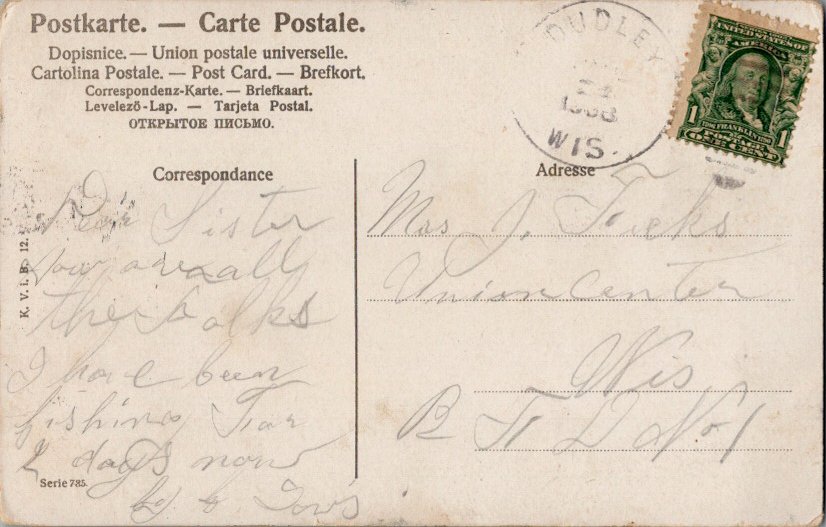 Postkarte. — Carte Postale.
Dopisnice. — Union postale universelle.
Cartolina Postale. — Post Card. — Brefkort.
Correspondenz-Karte. — Briefkaart.
Levelező-Lap. — Tarjeta Postal.
ОТКРЫТОЕ ПИСЬМО.
DUDLEY
1908
WIS.
UNITED STATES OF
AMERICA
1 FRANKLIN 1
POSTAGE
ONE CENT
Correspondance
Dear Sister
how are all
the folks
I have been
fishing for
2 days now
K. V. i. B. 12.
Serie 785.
Adresse
Mrs J.
Union Center
Wis
R F D No 1